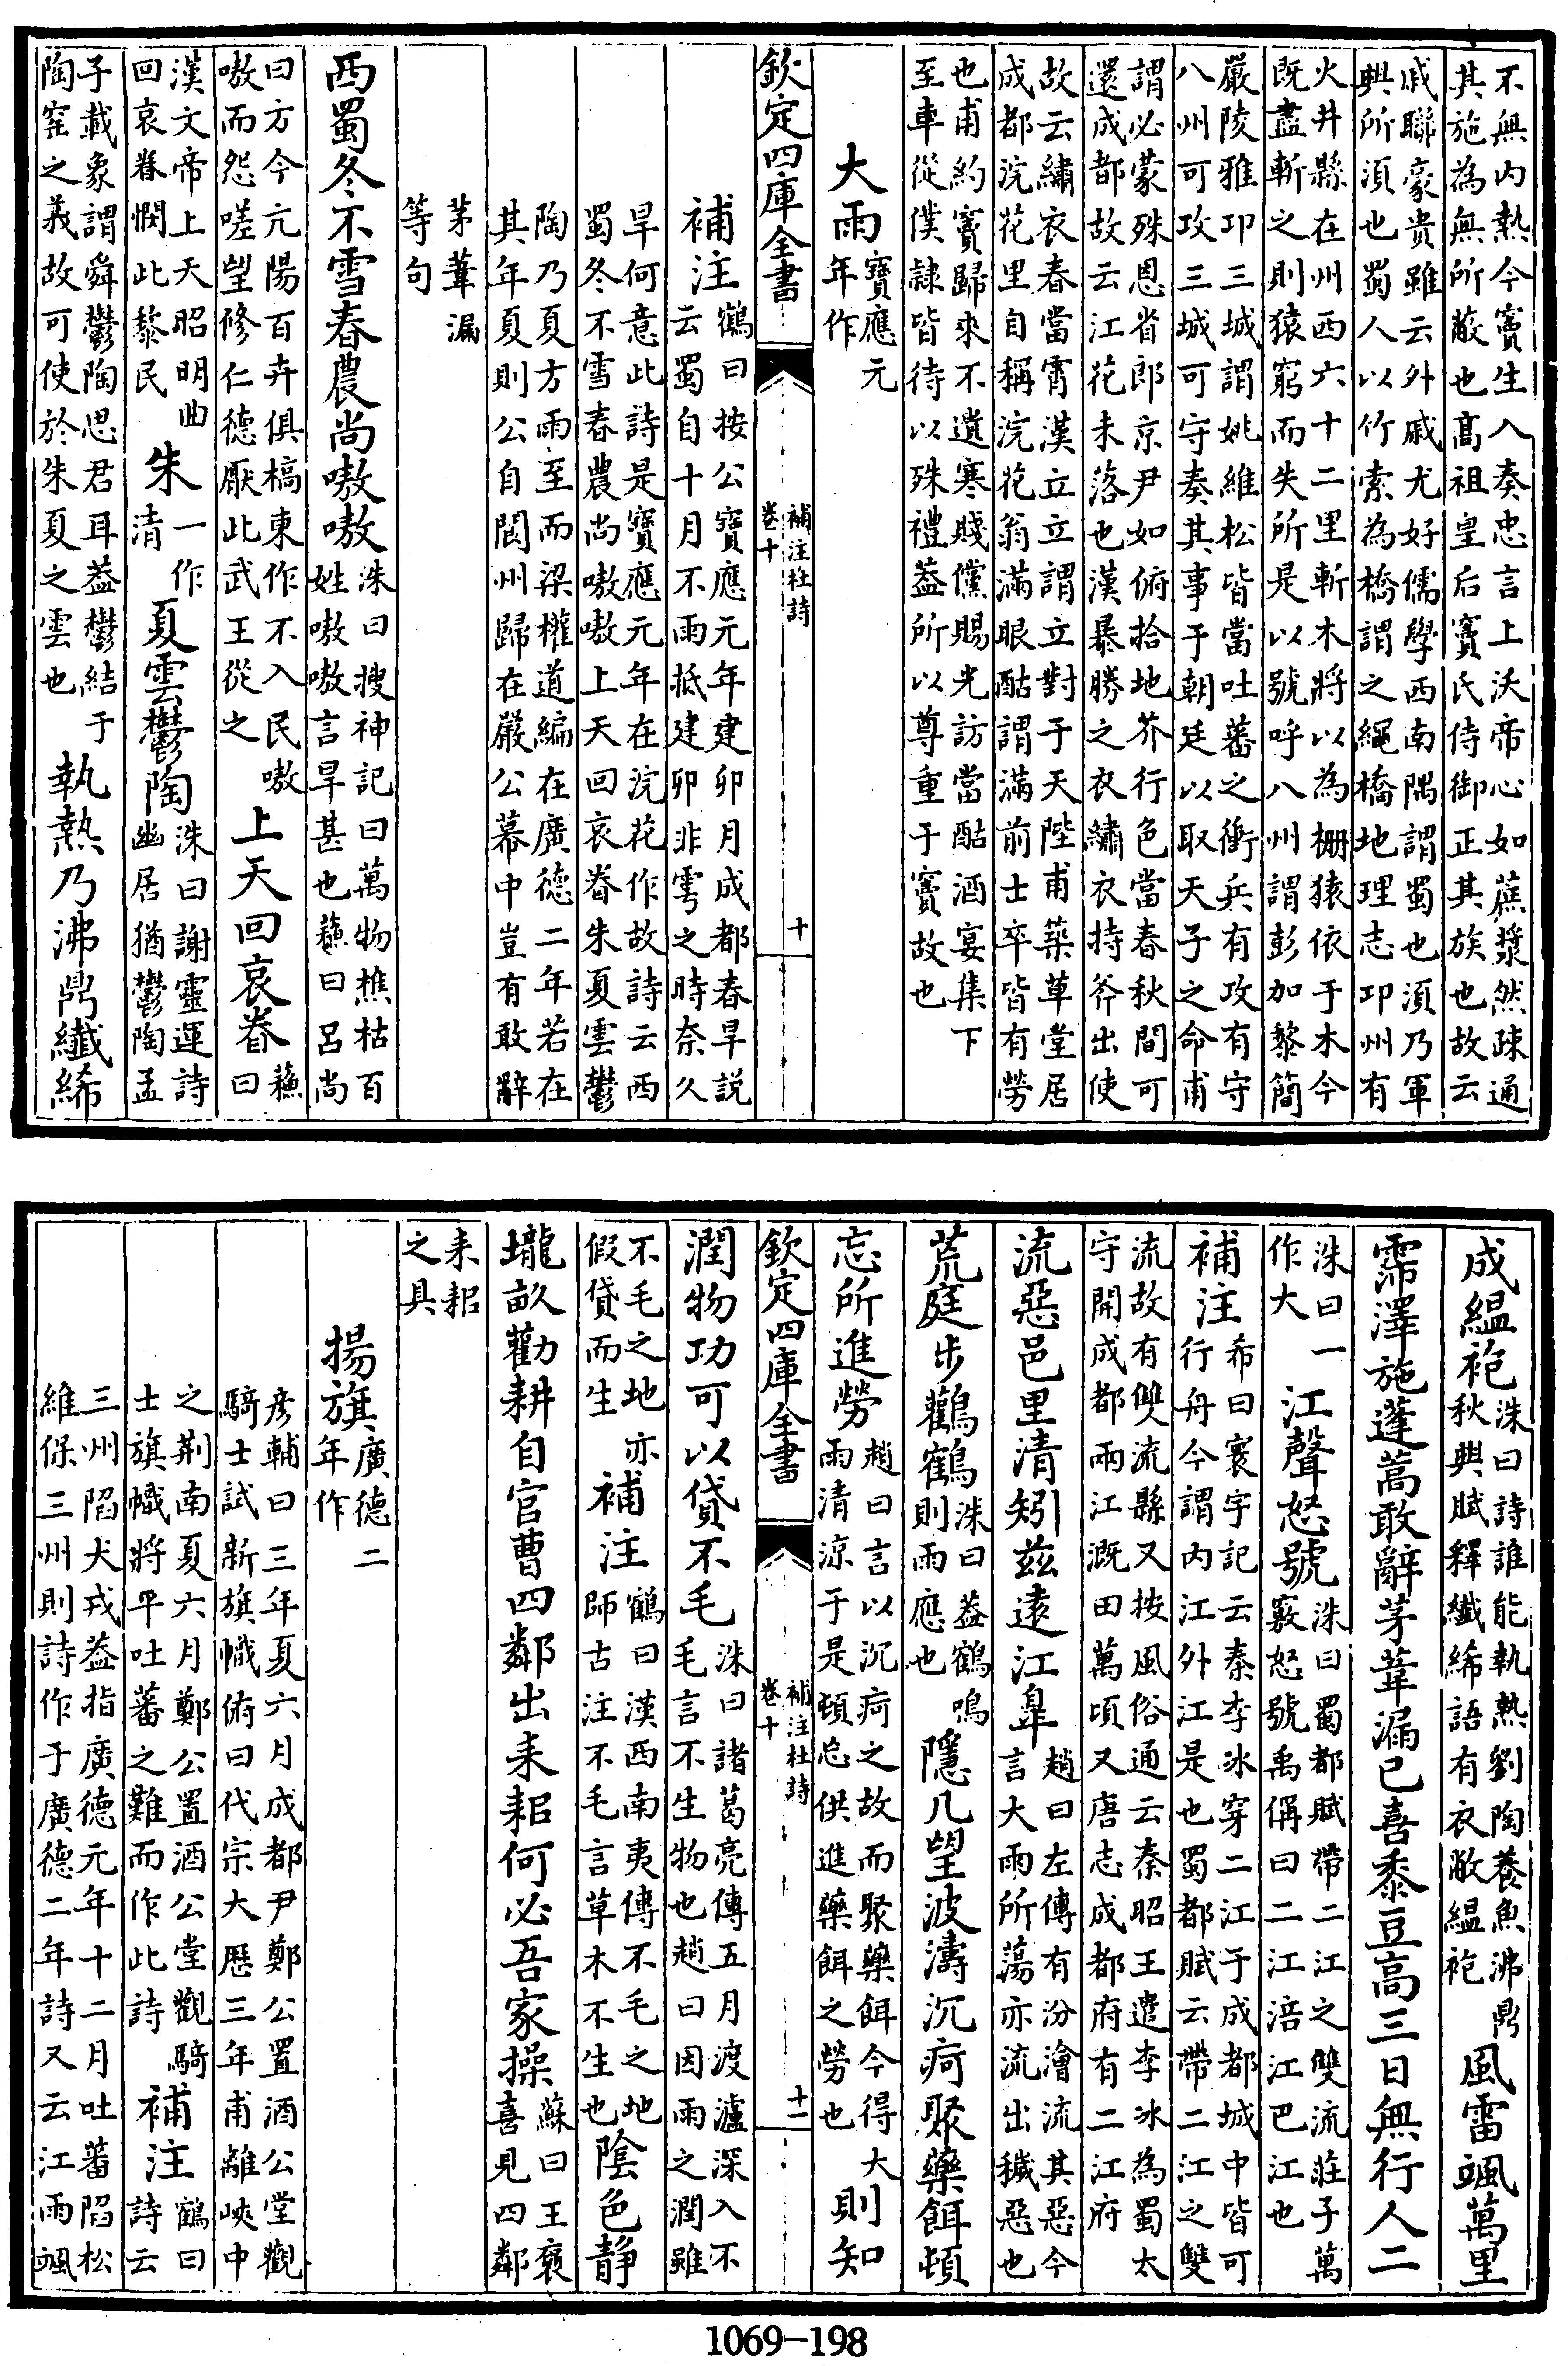 不無内熱今竇生入奏忠言上沃帝心如蔗漿然疎通
其施為無所蔽也髙祖皇后竇氏侍御正其族也故云
戚聯豪貴雖云外戚尤好儒學西南隅謂蜀也湏乃軍
興所湏也蜀人以竹索為橋謂之繩橋地理志卭州有
火井縣在州西六十二里斬木將以為栅猿依于木今
既盡斬之則猿窮而失所是以號呼八州謂彭加黎簡
嚴陵雅卭三城謂姚維松皆當吐蕃之衝兵有攻有守
八州可攻三城可守奏其事于朝廷以取天子之命甫
謂必蒙殊恩省郎京尹如俯拾地芥行色當春秋間可
還成都故云江花未落也漢暴勝之衣繡衣持斧出使
故云繡衣春當霄漢立立謂立對于天陛甫築草堂居
成都浣花里自稱浣花翁滿眼酤謂滿前士卒皆有勞
也甫約竇歸來不遺寒賤儻賜光訪當酤酒宴集下
至車從僕隷皆待以殊禮葢所以尊重于竇故也
大雨寳應元
年作
欽定四庫全書
補注杜詩
卷十
十
補注鶴曰按公寳應元年建卯月成都春旱説
云蜀自十月不雨抵建卯非雩之時奈久
旱何意此詩是寳應元年在浣花作故詩云西
蜀冬不雪春農尚嗷嗷上天回哀眷朱夏雲鬱
陶乃夏方雨至而梁權道編在廣德二年若在
其年夏則公自閬州歸在嚴公幕中豈有敢辭
茅葦漏
等句
西蜀冬不雪春農尚嗷嗷洙曰搜神記曰萬物樵枯百
姓嗷嗷言旱甚也蘇曰呂尚
曰方今亢陽百卉俱槁東作不入民嗷
嗷而怨嗟望修仁德厭此武王從之
上天回哀眷蘇曰
漢文帝上天昭明曲
回哀眷憫此黎民
朱一作
清
夏雲鬱陶洙曰謝靈運詩
幽居猶鬱陶孟
子載象謂舜鬱陶思君耳葢鬱結于
陶窰之義故可使於朱夏之雲也
執熱乃沸鼎纖絺
成緼袍洙曰詩誰能執熱劉陶養魚沸鼎
秋興賦釋纖絺語有衣敝緼袍
風雷颯萬里
霈澤施蓬蒿敢辭茅葦漏已喜黍豆高三日無行人二
洙曰一
作大
江聲怒號洙曰蜀都賦帶二江之雙流莊子萬
竅怒號禹偁曰二江涪江巴江也
補注希曰寰宇記云秦李冰穿二江于成都城中皆可
行舟今謂内江外江是也蜀都賦云帶二江之雙
流故有雙流縣又按風俗通云秦昭王遣李冰為蜀太
守開成都兩江溉田萬頃又唐志成都府有二江府
流惡邑里清矧兹逺江臯趙曰左傳有汾澮流其惡今
言大雨所蕩亦流出穢惡也
荒庭步鸛鶴洙曰葢鶴鳴
則雨應也
隱几望波濤沉疴聚藥餌頓
忘所進勞趙曰言以沉疴之故而聚藥餌今得大
雨清涼于是頓忘供進藥餌之勞也
則知
欽定四庫全書
補注杜詩
卷十
十一
潤物功可以貸不毛洙曰諸葛亮傳五月渡瀘深入不
毛言不生物也趙曰因雨之潤雖
不毛之地亦
假貸而生
補注鶴曰漢西南夷傳不毛之地
師古注不毛言草木不生也
陰色静
壠畝勸耕自官曹四鄰出耒耜何必吾家操蘇曰王褒
喜見四鄰
耒耜
之具
揚旗廣德二
年作
彦輔曰三年夏六月成都尹鄭公置酒公堂觀
騎士試新旗幟俯曰代宗大厯三年甫離峽中
之荆南夏六月鄭公置酒公堂觀騎
士旗幟將平吐蕃之難而作此詩
補注鶴曰
詩云
三州陷犬戎葢指廣德元年十二月吐蕃陷松
維保三州則詩作于廣德二年詩又云江雨颯
1069-198